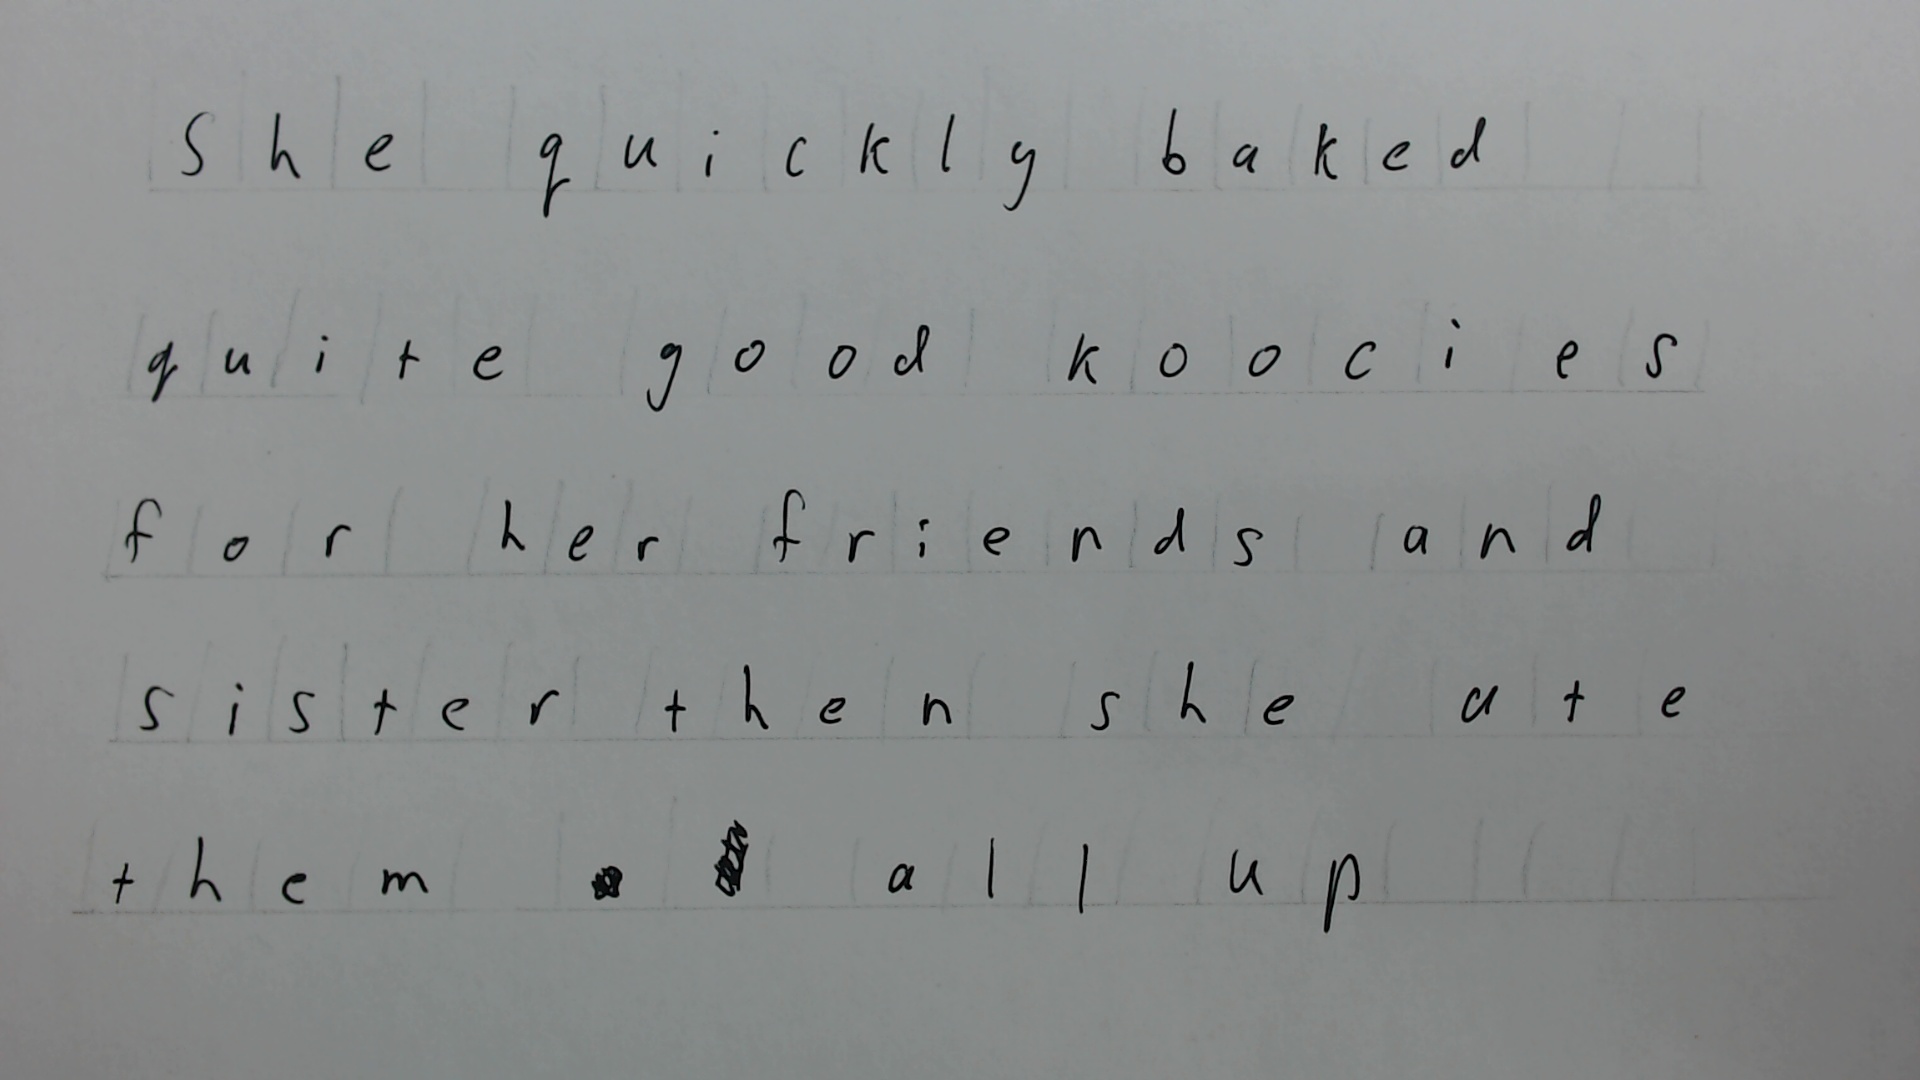 She quickly baked
quite good koocies
for her friends and
sister then she ate
them all up